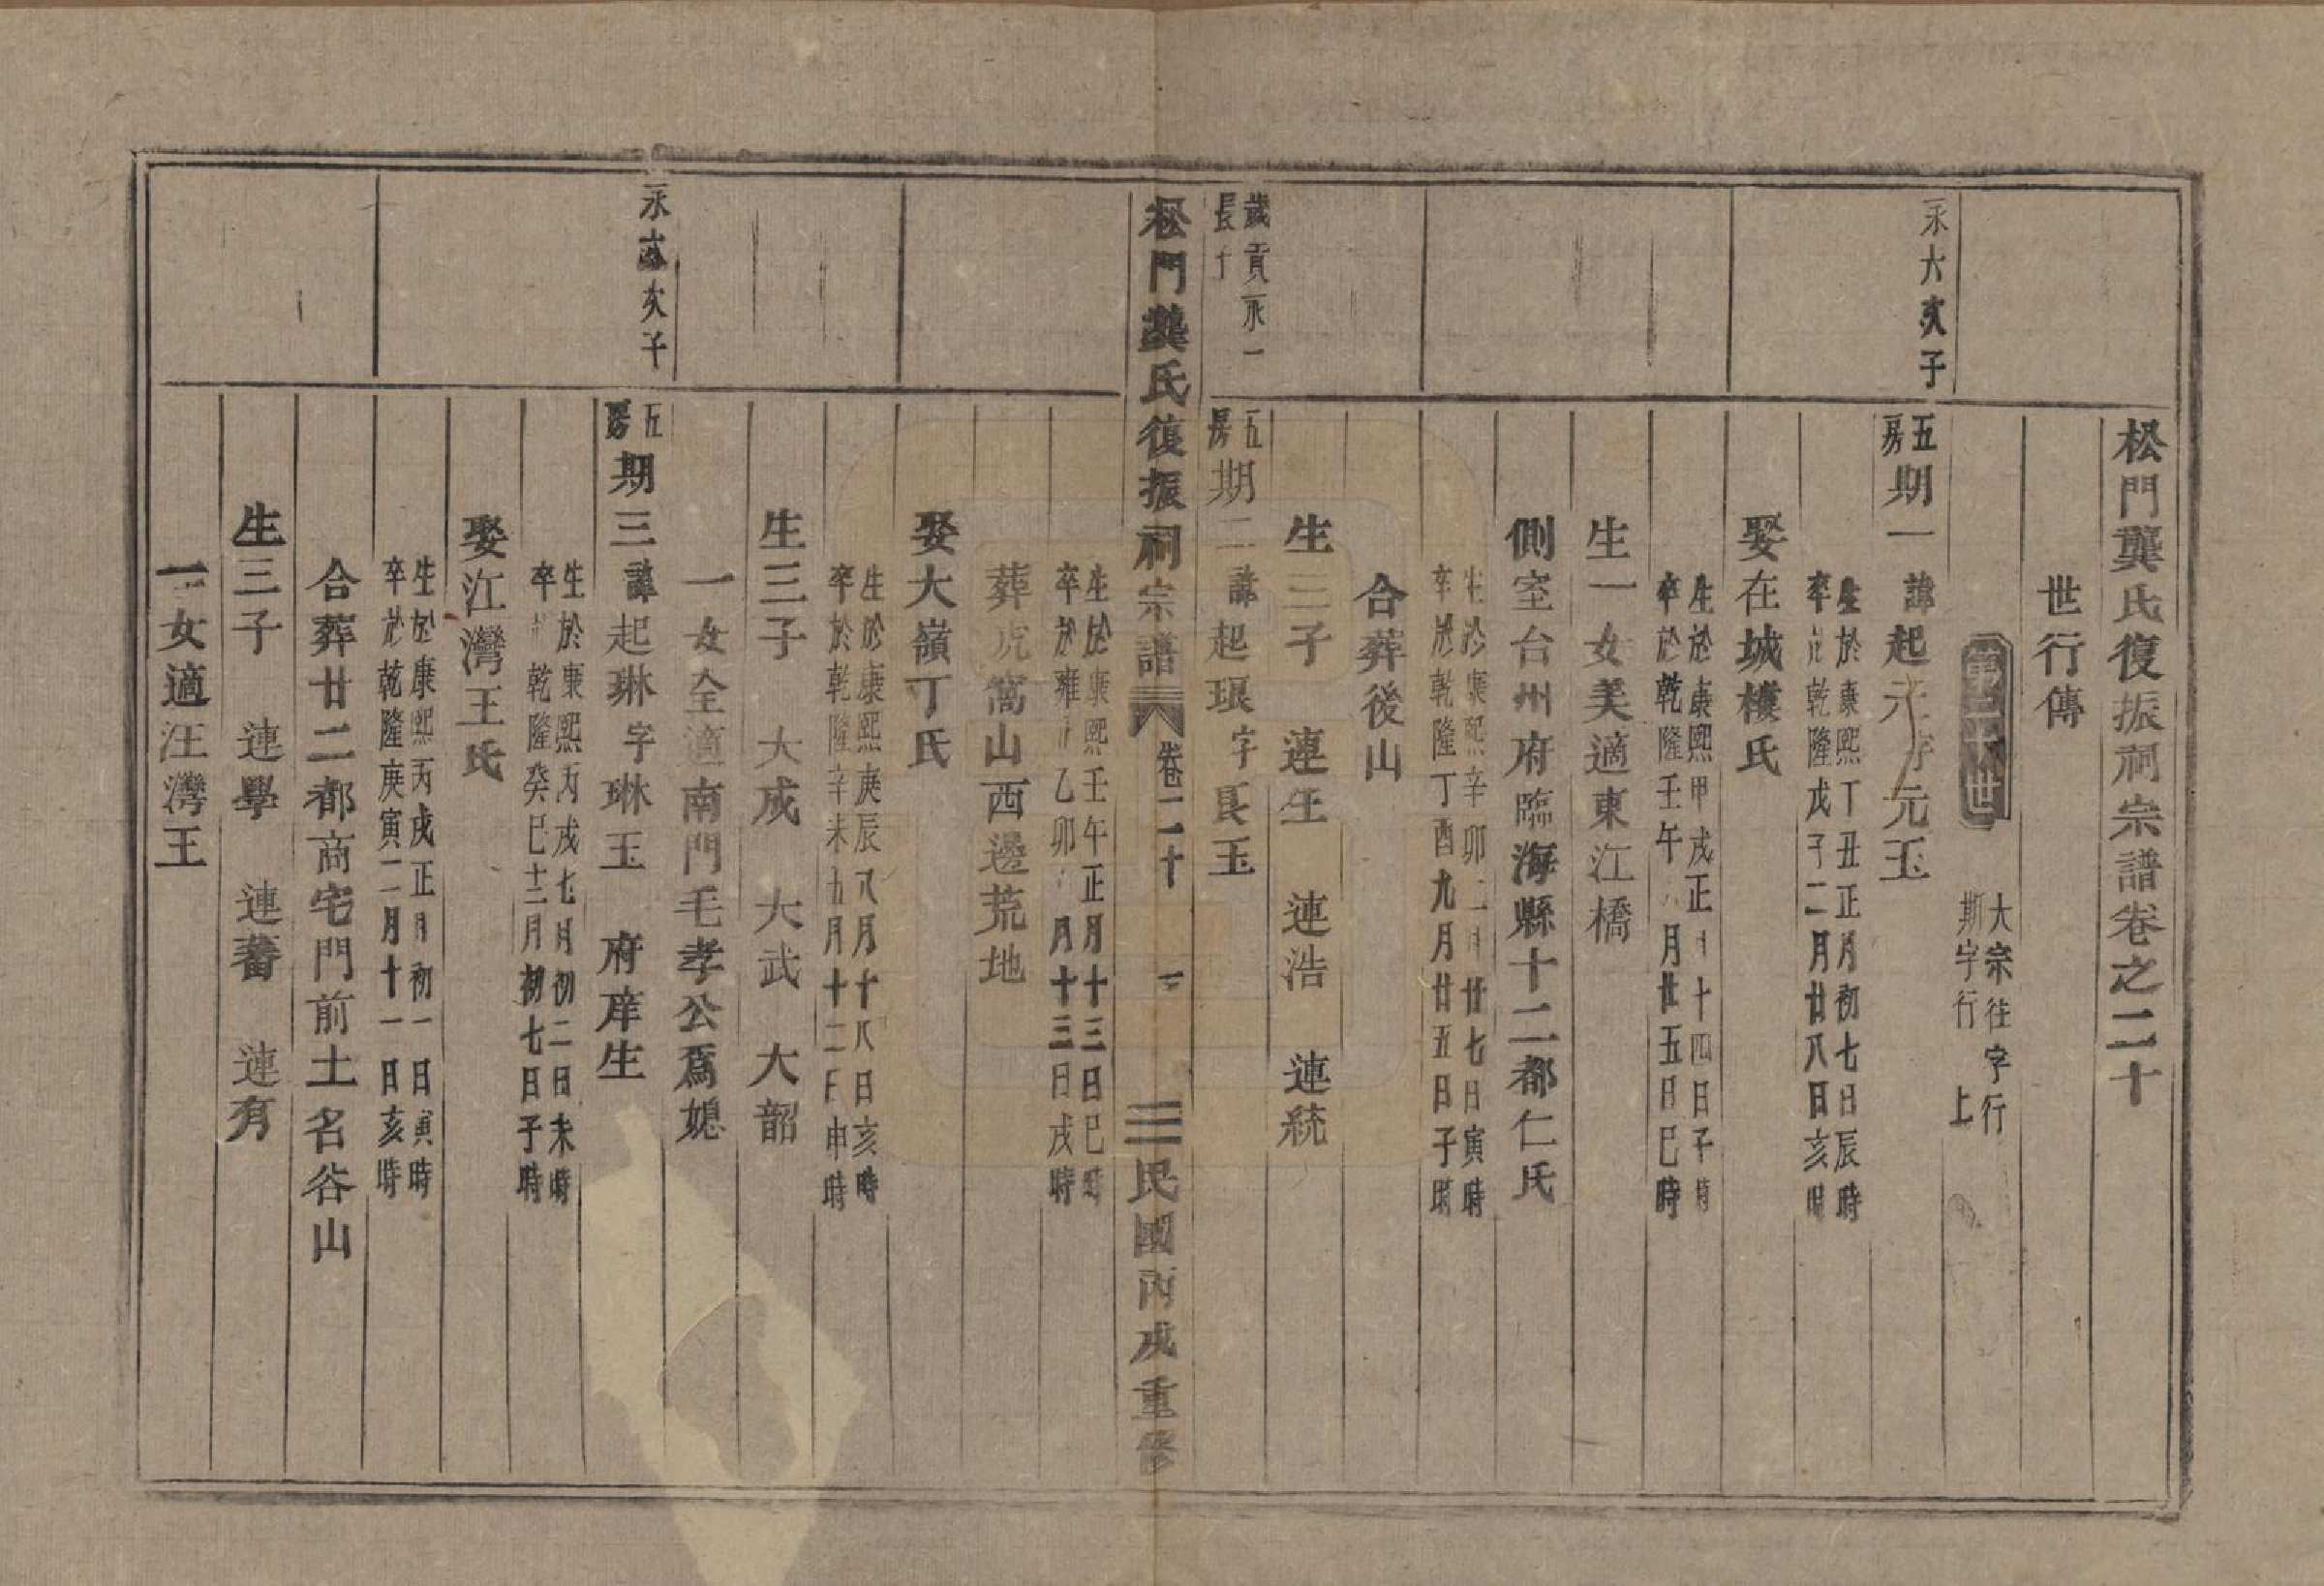 松門龔氏復振祠宗譜卷之二十
世行傳
世 大宗往字行
斯字行 上
永六次子
五房期一 諱起元字元玉
生於康熙丁丑正月初七日辰時
卒於乾隆戊子二月廿八日亥時
娶在城樓氏
生於康熙甲戌正月十四日子時
卒於乾隆壬午 月廿五日巳時
生一女美適東江橋
側室台州府臨海縣十二都仁氏
生於康熙辛卯二月廿七日寅時
卒於乾隆丁酉九月廿五日子時
合葬後山
生三子 連生 連浩 連統
歲貢永一
長子
五房期二 諱起珢字艮玉
松門龔氏復振祠宗譜 卷二十 一 民國丙戌重修
生於康熙壬午正月十三日巳時
卒於雍正乙卯 月十三日戌時
葬虎窩山西邊荒地
娶大嶺丁氏
生於康熙庚辰八月十八日亥時
卒於乾隆辛未九月十二日申時
生三子 大成 大武 大韶
一女全適南門毛孝公爲媳
永 次子
五房期三 諱起琳字琳玉 府庠生
生於康熙丙戌七月初二日未時
卒於乾隆癸巳十二月初七日子時
娶江灣王氏
生於康熙丙戌正月初一日寅時
卒於乾隆庚寅二月十一日亥時
合葬廿二都商宅門前土名谷山
生三子 連學 連蕃 連有
一女適汪灣王